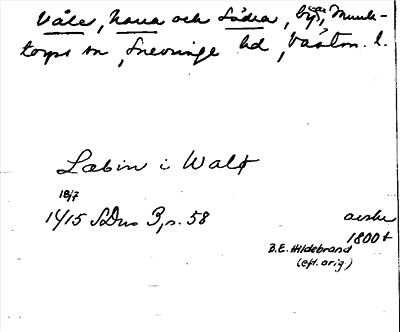 Våle, Norra och Södra, byar, Munk-
torps sn, Snevringe hd, Västm. l.
Læbin i Walø
18/7
1415 SDns 3, s. 58
avskr
1800 t
B.E. Hildebrand
(eft. orig.)